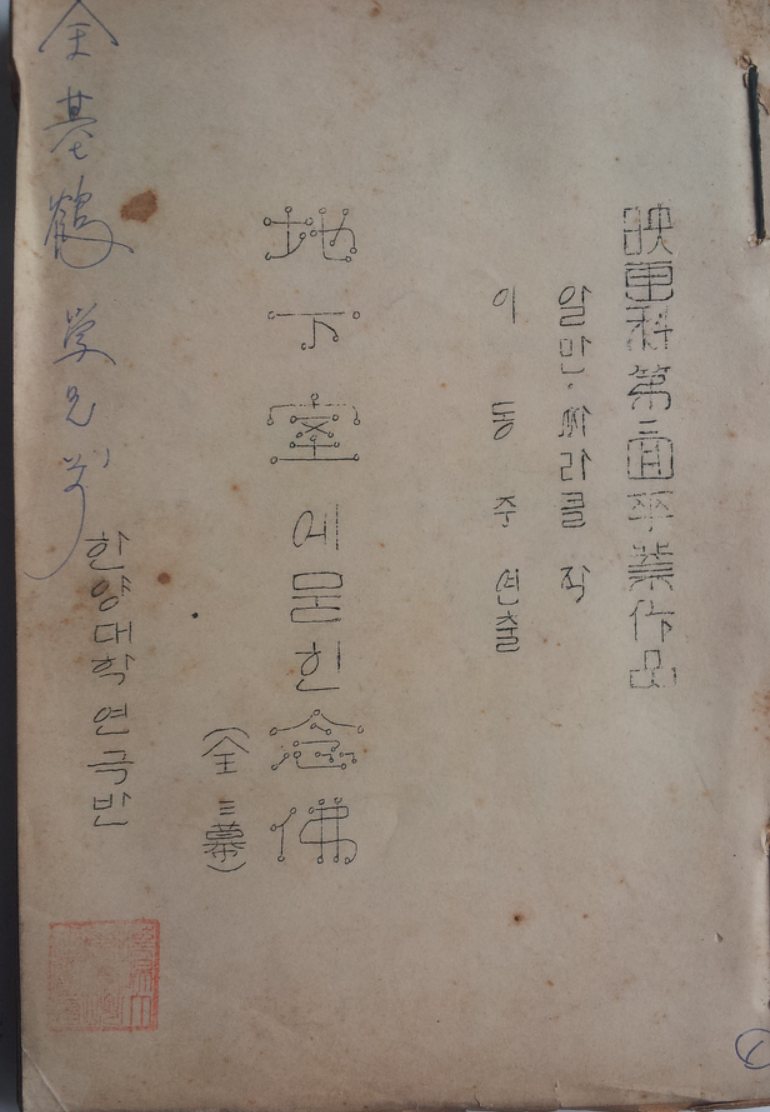 映画科第三回卒業作品
알만·싸라클 작
이동주 연출
地下室에묻힌念佛
(全三幕)
한양대학연극반